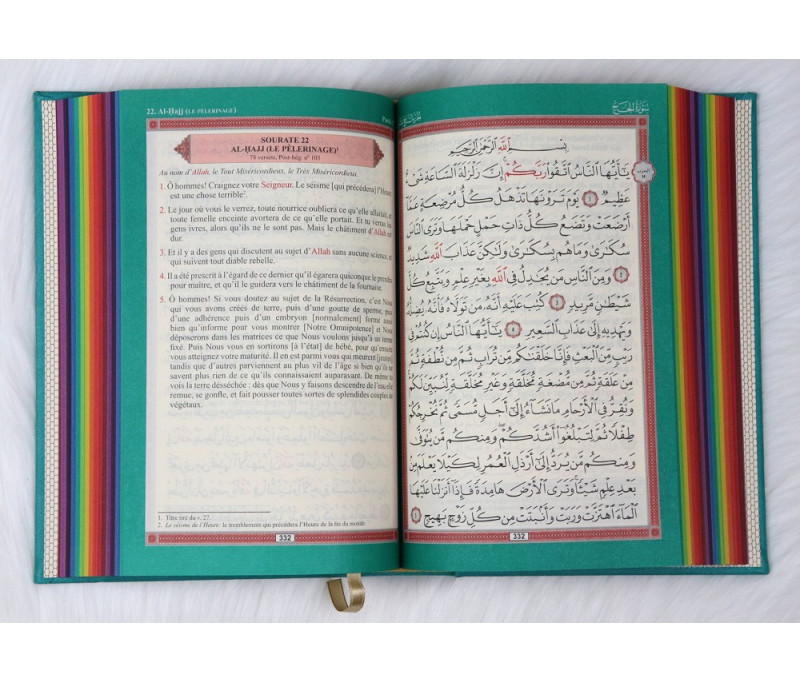 22. Al-Ḥajj (LE PÈLERINAGE)
SOURATE 22
AL-ḤAJJ (LE PÈLERINAGE)¹
78 versets, Post-hég. n° 103
Au nom d'Allah, le Tout Miséricordieux, le Très Miséricordieux.
1. Ô hommes! Craignez votre Seigneur. Le séisme [qui précédera] l'Heure
est une chose terrible².
2. Le jour où vous le verrez, toute nourrice oubliera ce qu'elle allaitait, et
toute femelle enceinte avortera de ce qu'elle portait. Et tu verras les
gens ivres, alors qu'ils ne le sont pas. Mais le châtiment d'Allah est
dur.
3. Et il y a des gens qui discutent au sujet d'Allah sans aucune science, et
qui suivent tout diable rebelle.
4. Il a été prescrit à l'égard de ce dernier qu'il égarera quiconque le prendra
pour maître, et qu'il le guidera vers le châtiment de la fournaise.
5. Ô hommes! Si vous doutez au sujet de la Résurrection, c'est Nous
qui vous avons créés de terre, puis d'une goutte de sperme, puis
d'une adhérence puis d'un embryon [normalement] formé aussi
bien qu'informe pour vous montrer [Notre Omnipotence] et Nous
déposerons dans les matrices ce que Nous voulons jusqu'à un terme
fixé. Puis Nous vous en sortirons [à l'état] de bébé, pour qu'ensuite
vous atteigniez votre maturité. Il en est parmi vous qui meurent [jeunes]
tandis que d'autres parviennent au plus vil de l'âge si bien qu'ils ne
savent plus rien de ce qu'ils connaissaient auparavant. De même tu
vois la terre desséchée : dès que Nous y faisons descendre de l'eau elle
remue, se gonfle, et fait pousser toutes sortes de splendides couples de
végétaux.
1. Titre tiré du v. 27.
2. Le séisme de l'Heure: le tremblement qui précédera l'Heure de la fin du monde.
332
سورة الحج
بِسْمِ اللَّهِ الرَّحْمَٰنِ الرَّحِيمِ
يَا أَيُّهَا النَّاسُ اتَّقُوا رَبَّكُمْ إِنَّ زَلْزَلَةَ السَّاعَةِ شَيْءٌ
عَظِيمٌ ١ يَوْمَ تَرَوْنَهَا تَذْهَلُ كُلُّ مُرْضِعَةٍ عَمَّا
أَرْضَعَتْ وَتَضَعُ كُلُّ ذَاتِ حَمْلٍ حَمْلَهَا وَتَرَى النَّاسَ
سُكَارَىٰ وَمَا هُم بِسُكَارَىٰ وَلَٰكِنَّ عَذَابَ اللَّهِ شَدِيدٌ
٢ وَمِنَ النَّاسِ مَن يُجَادِلُ فِي اللَّهِ بِغَيْرِ عِلْمٍ وَيَتَّبِعُ كُلَّ
شَيْطَانٍ مَّرِيدٍ ٣ كُتِبَ عَلَيْهِ أَنَّهُ مَن تَوَلَّاهُ فَأَنَّهُ يُضِلُّهُ
وَيَهْدِيهِ إِلَىٰ عَذَابِ السَّعِيرِ ٤ يَا أَيُّهَا النَّاسُ إِن كُنتُمْ فِي
رَيْبٍ مِّنَ الْبَعْثِ فَإِنَّا خَلَقْنَاكُم مِّن تُرَابٍ ثُمَّ مِن نُّطْفَةٍ ثُمَّ
مِنْ عَلَقَةٍ ثُمَّ مِن مُّضْغَةٍ مُّخَلَّقَةٍ وَغَيْرِ مُخَلَّقَةٍ لِّنُبَيِّنَ لَكُمْ
وَنُقِرُّ فِي الْأَرْحَامِ مَا نَشَاءُ إِلَىٰ أَجَلٍ مُّسَمًّى ثُمَّ نُخْرِجُكُمْ
طِفْلًا ثُمَّ لِتَبْلُغُوا أَشُدَّكُمْ وَمِنكُم مَّن يُتَوَفَّىٰ
وَمِنكُم مَّن يُرَدُّ إِلَىٰ أَرْذَلِ الْعُمُرِ لِكَيْلَا يَعْلَمَ مِن
بَعْدِ عِلْمٍ شَيْئًا وَتَرَى الْأَرْضَ هَامِدَةً فَإِذَا أَنزَلْنَا عَلَيْهَا
الْمَاءَ اهْتَزَّتْ وَرَبَتْ وَأَنبَتَتْ مِن كُلِّ زَوْجٍ بَهِيجٍ ٥
332